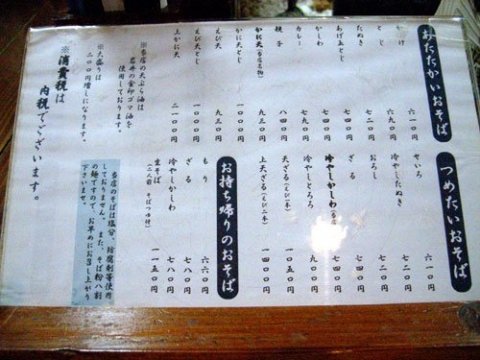 あたたかいおそば
かけ 六一〇円
とじ 七二〇円
たぬき 七二〇円
あげ玉とじ
かしわ 七四〇円
カレー
親子 八四〇円
かに天(当店名物)
かに天とじ 一〇〇〇円
えび天 九五〇円
えび天とじ 一〇〇〇円
上かに天 二一〇〇円
※当店の天ぷら油は
岩井の金印ゴマ油を
使用しております。
※大盛りは
二〇〇円増しになります。
※消費税は
内税でございます。
つめたいおそば
せいろ 六一〇円
冷やしたぬき 七二〇円
おろし 七二〇円
ざる 七四〇円
冷やしかしわ 七四〇円
冷やしとろろ 九〇〇円
天ざる(えび二本) 一〇五〇円
上天ざる(えび二本) 一四〇〇円
お持ち帰りのおそば
もり 六六〇円
ざる 七八〇円
冷やしかしわ 七八〇円
生そば 一一五〇円
(二人前 そばつゆ付)
当店のそばは塩分、防腐剤等使用
しておりません。また、そば粉八割
の麺ですので、お早めにお召し上がり
下さいませ。